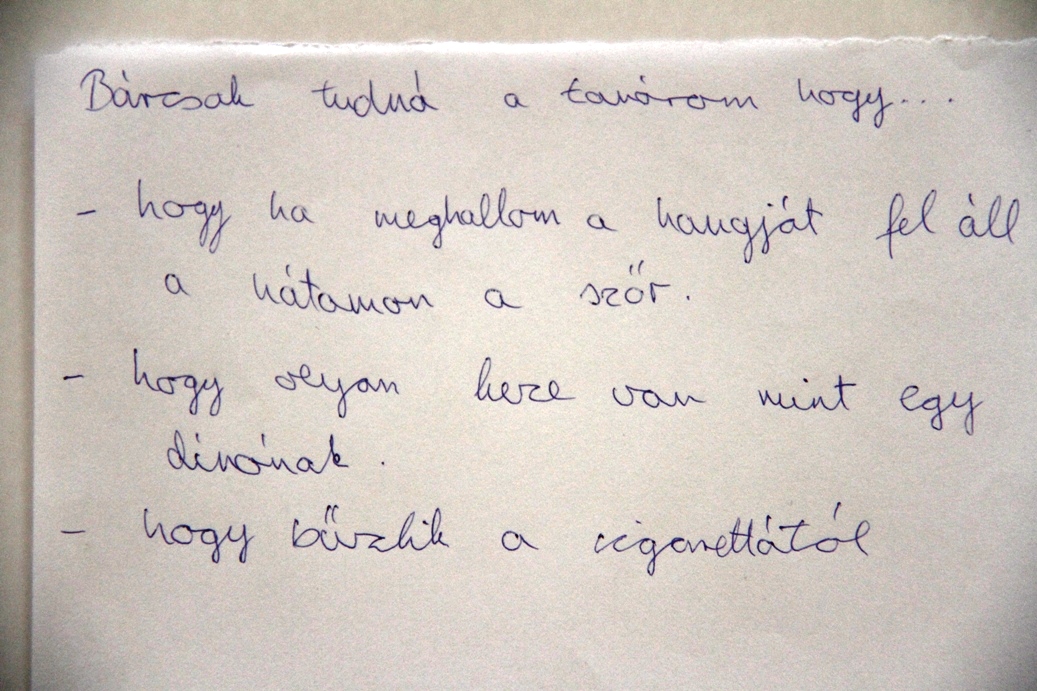 Bárcsak tudná a tanárom hogy...
- hogy ha meghallom a hangját fel áll
a hátamon a szőr.
- hogy olyan keze van mint egy
dívának.
- hogy bűzlik a cigarettától